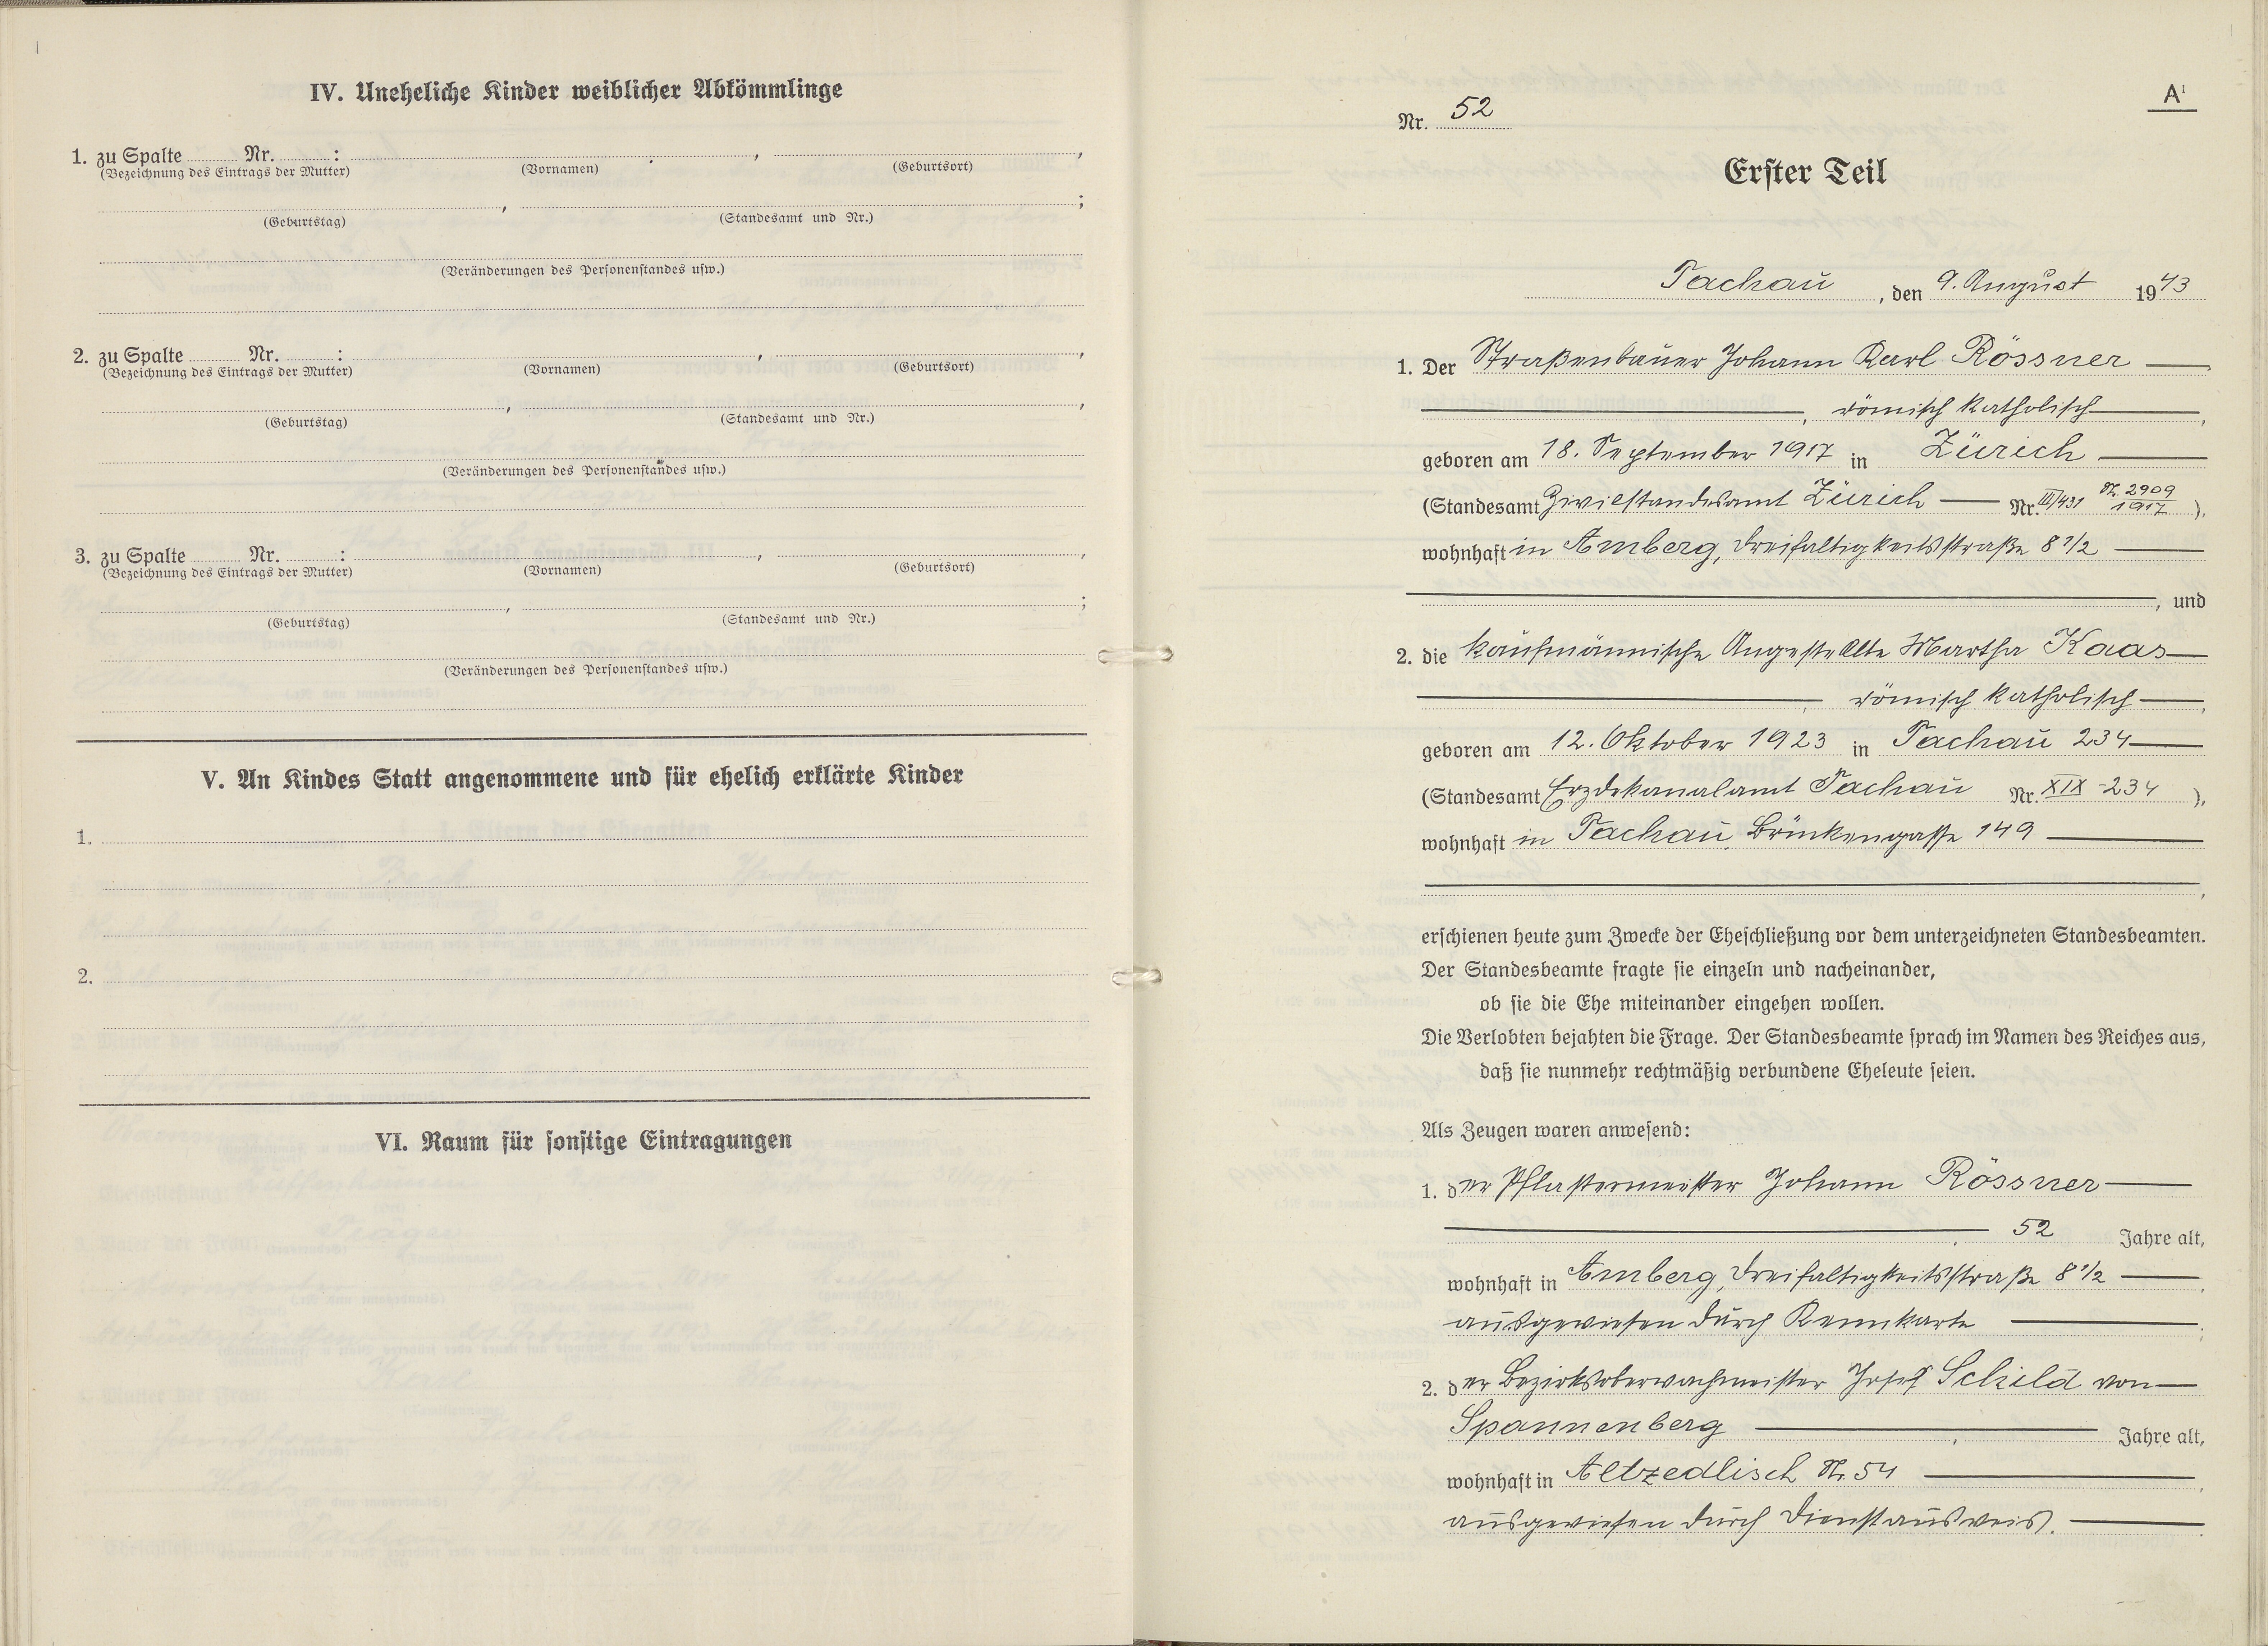 IV. Uneheliche Kinder weiblicher Abkömmlinge
1. zu Spalte Nr. : , ,
(Bezeichnung des Eintrags der Mutter) (Vornamen) (Geburtsort)
, ;
(Geburtstag) (Standesamt und Nr.)
(Veränderungen des Personenstandes usw.)
2. zu Spalte Nr. : , ,
(Bezeichnung des Eintrags der Mutter) (Vornamen) (Geburtsort)
, ,
(Geburtstag) (Standesamt und Nr.)
(Veränderungen des Personenstandes usw.)
3. zu Spalte Nr. : , ,
(Bezeichnung des Eintrags der Mutter) (Vornamen) (Geburtsort)
, ;
(Geburtstag) (Standesamt und Nr.)
(Veränderungen des Personenstandes usw.)
V. An Kindes Statt angenommene und für ehelich erklärte Kinder
1.
2.
VI. Raum für sonstige Eintragungen
A¹
Nr. 52
Erster Teil
Tachau, den 9. August 1943
1. Der Straßenbauer Johann Karl Rössner
, römisch katholisch,
geboren am 18. September 1917 in Zürich
(Standesamt Zivilstandesamt Zürich Nr. III/431 Nr. 2909/1917),
wohnhaft in Amberg, Dreifaltigkeitsstraße 8 1/2
, und
2. die kaufmännische Angestellte Martha Kaas
, römisch katholisch,
geboren am 12. Oktober 1923 in Tachau 234
(Standesamt Erzdekanalamt Tachau Nr. XIX-234),
wohnhaft in Tachau, Brückengasse 149
,
erschienen heute zum Zwecke der Eheschließung vor dem unterzeichneten Standesbeamten.
Der Standesbeamte fragte sie einzeln und nacheinander,
ob sie die Ehe miteinander eingehen wollen.
Die Verlobten bejahten die Frage. Der Standesbeamte sprach im Namen des Reiches aus,
daß sie nunmehr rechtmäßig verbundene Eheleute seien.
Als Zeugen waren anwesend:
1. der Pflastermeister Johann Rössner
, 52 Jahre alt,
wohnhaft in Amberg, Dreifaltigkeitsstraße 8 1/2,
ausgewiesen durch Kennkarte ;
2. der Bezirksoberwachmeister Josef Schild von
Spannenberg , Jahre alt,
wohnhaft in Altzedlisch Nr. 54 ,
ausgewiesen durch Dienstausweis.